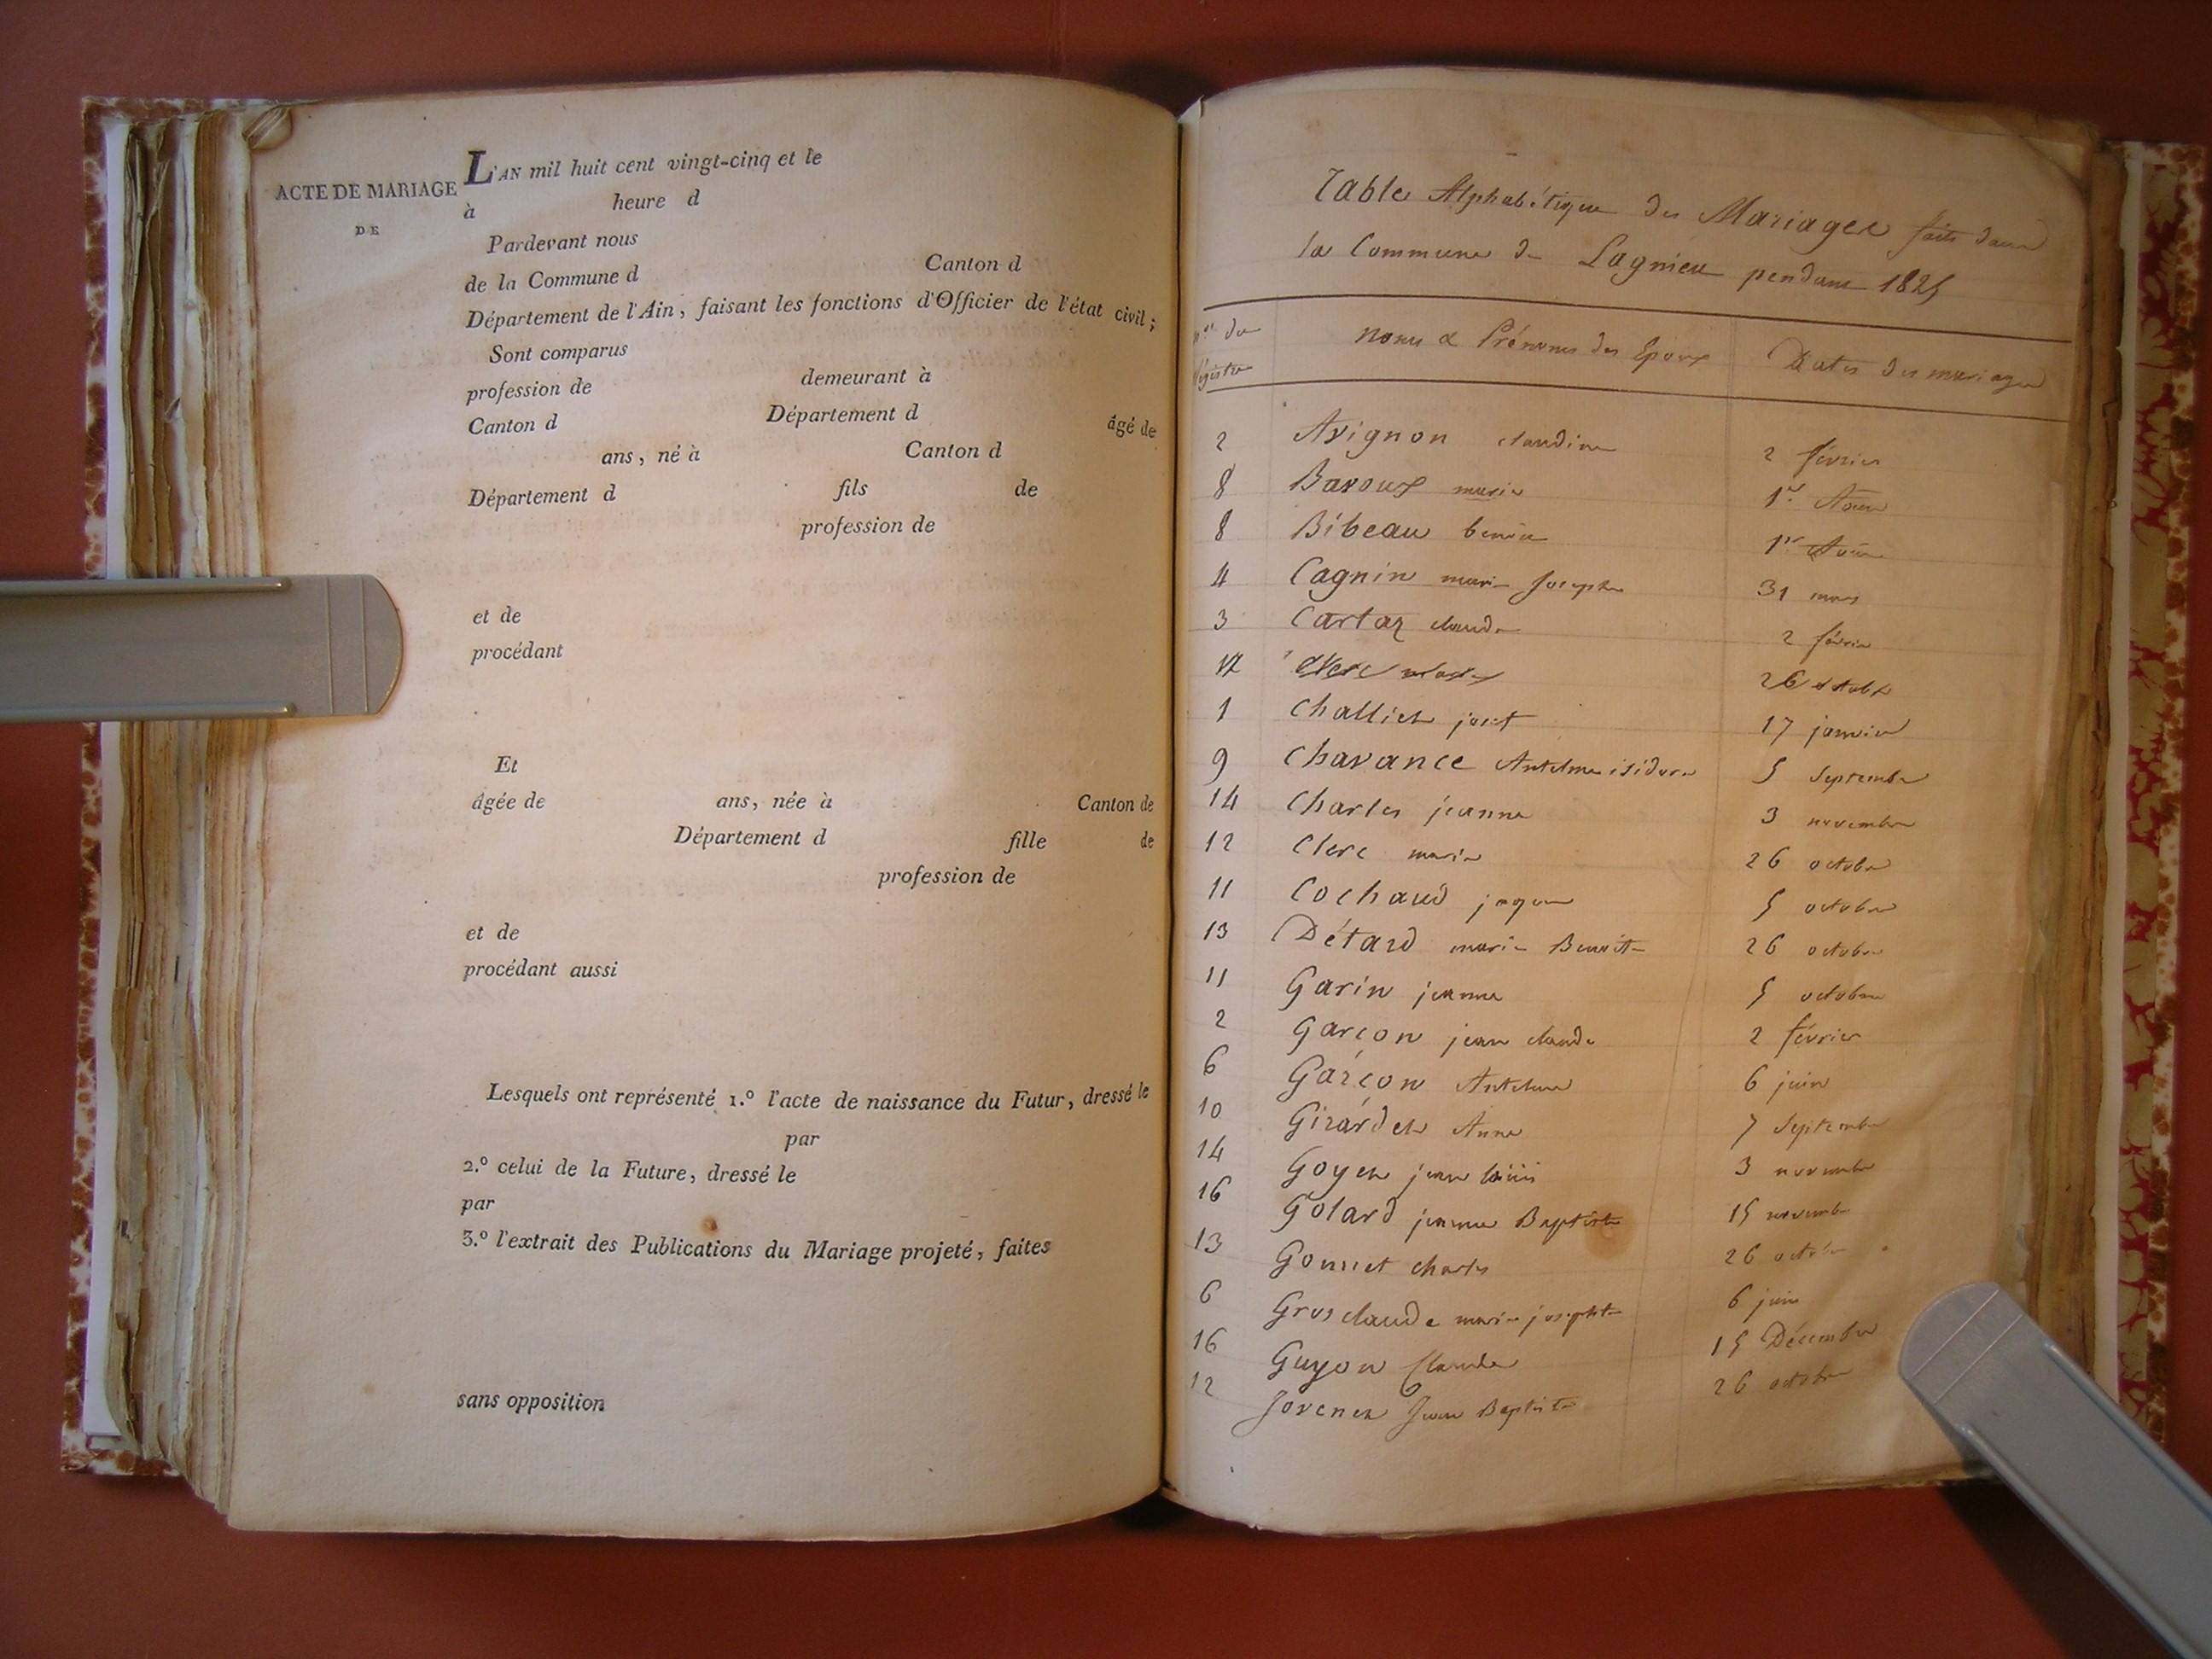 ACTE DE MARIAGE
DE
L'AN mil huit cent vingt-cinq et le
à heure d
Pardevant nous
de la Commune d Canton d
Département de l'Ain, faisant les fonctions d'Officier de l'état civil ;
Sont comparus
profession de demeurant à
Canton d Département d âgé de
ans, né à Canton d
Département d fils de
profession de
et de
procédant
Et
âgée de ans, née à Canton de
Département d fille de
profession de
et de
procédant aussi
Lesquels ont représenté 1.º l'acte de naissance du Futur, dressé le
par
2.º celui de la Future, dressé le
par
3.º l'extrait des Publications du Mariage projeté, faites
sans opposition
Table Alphabétique des Mariages faits dans
la Commune de Lagnieu pendant 1825
nos du Régistre Noms & Prénoms des Epoux Dates des mariages
2 Avignon claudine 2 février
8 Baroux marie 1er Aout
8 Bibeau 1er Aout
4 Cagnin marie Josephe 31 mars
3 Cartaz claude 2 février
12 Clerc marie 26 octobre
1 Challiet 17 janvier
9 Chavance Antelme isidore 5 Septembre
14 Charles jeanne 3 novembre
12 Clerc marie 26 octobre
11 Cochaud jaque 5 octobre
13 Détard marie Benoite 26 octobre
11 Garin jeanne 5 octobre
2 Garçon jean claude 2 février
6 Garçon Antelme 6 juin
10 Girardet Anne 7 Septembre
14 Goyet jean louis 3 novembre
16 Golard jeanne Baptiste 15 novembre
13 Gonnet charles 26 octobre
6 Grosclaude marie josephte 6 juin
16 Guyon Claude 15 Décembre
12 Jovenet Jean Baptiste 26 octobre